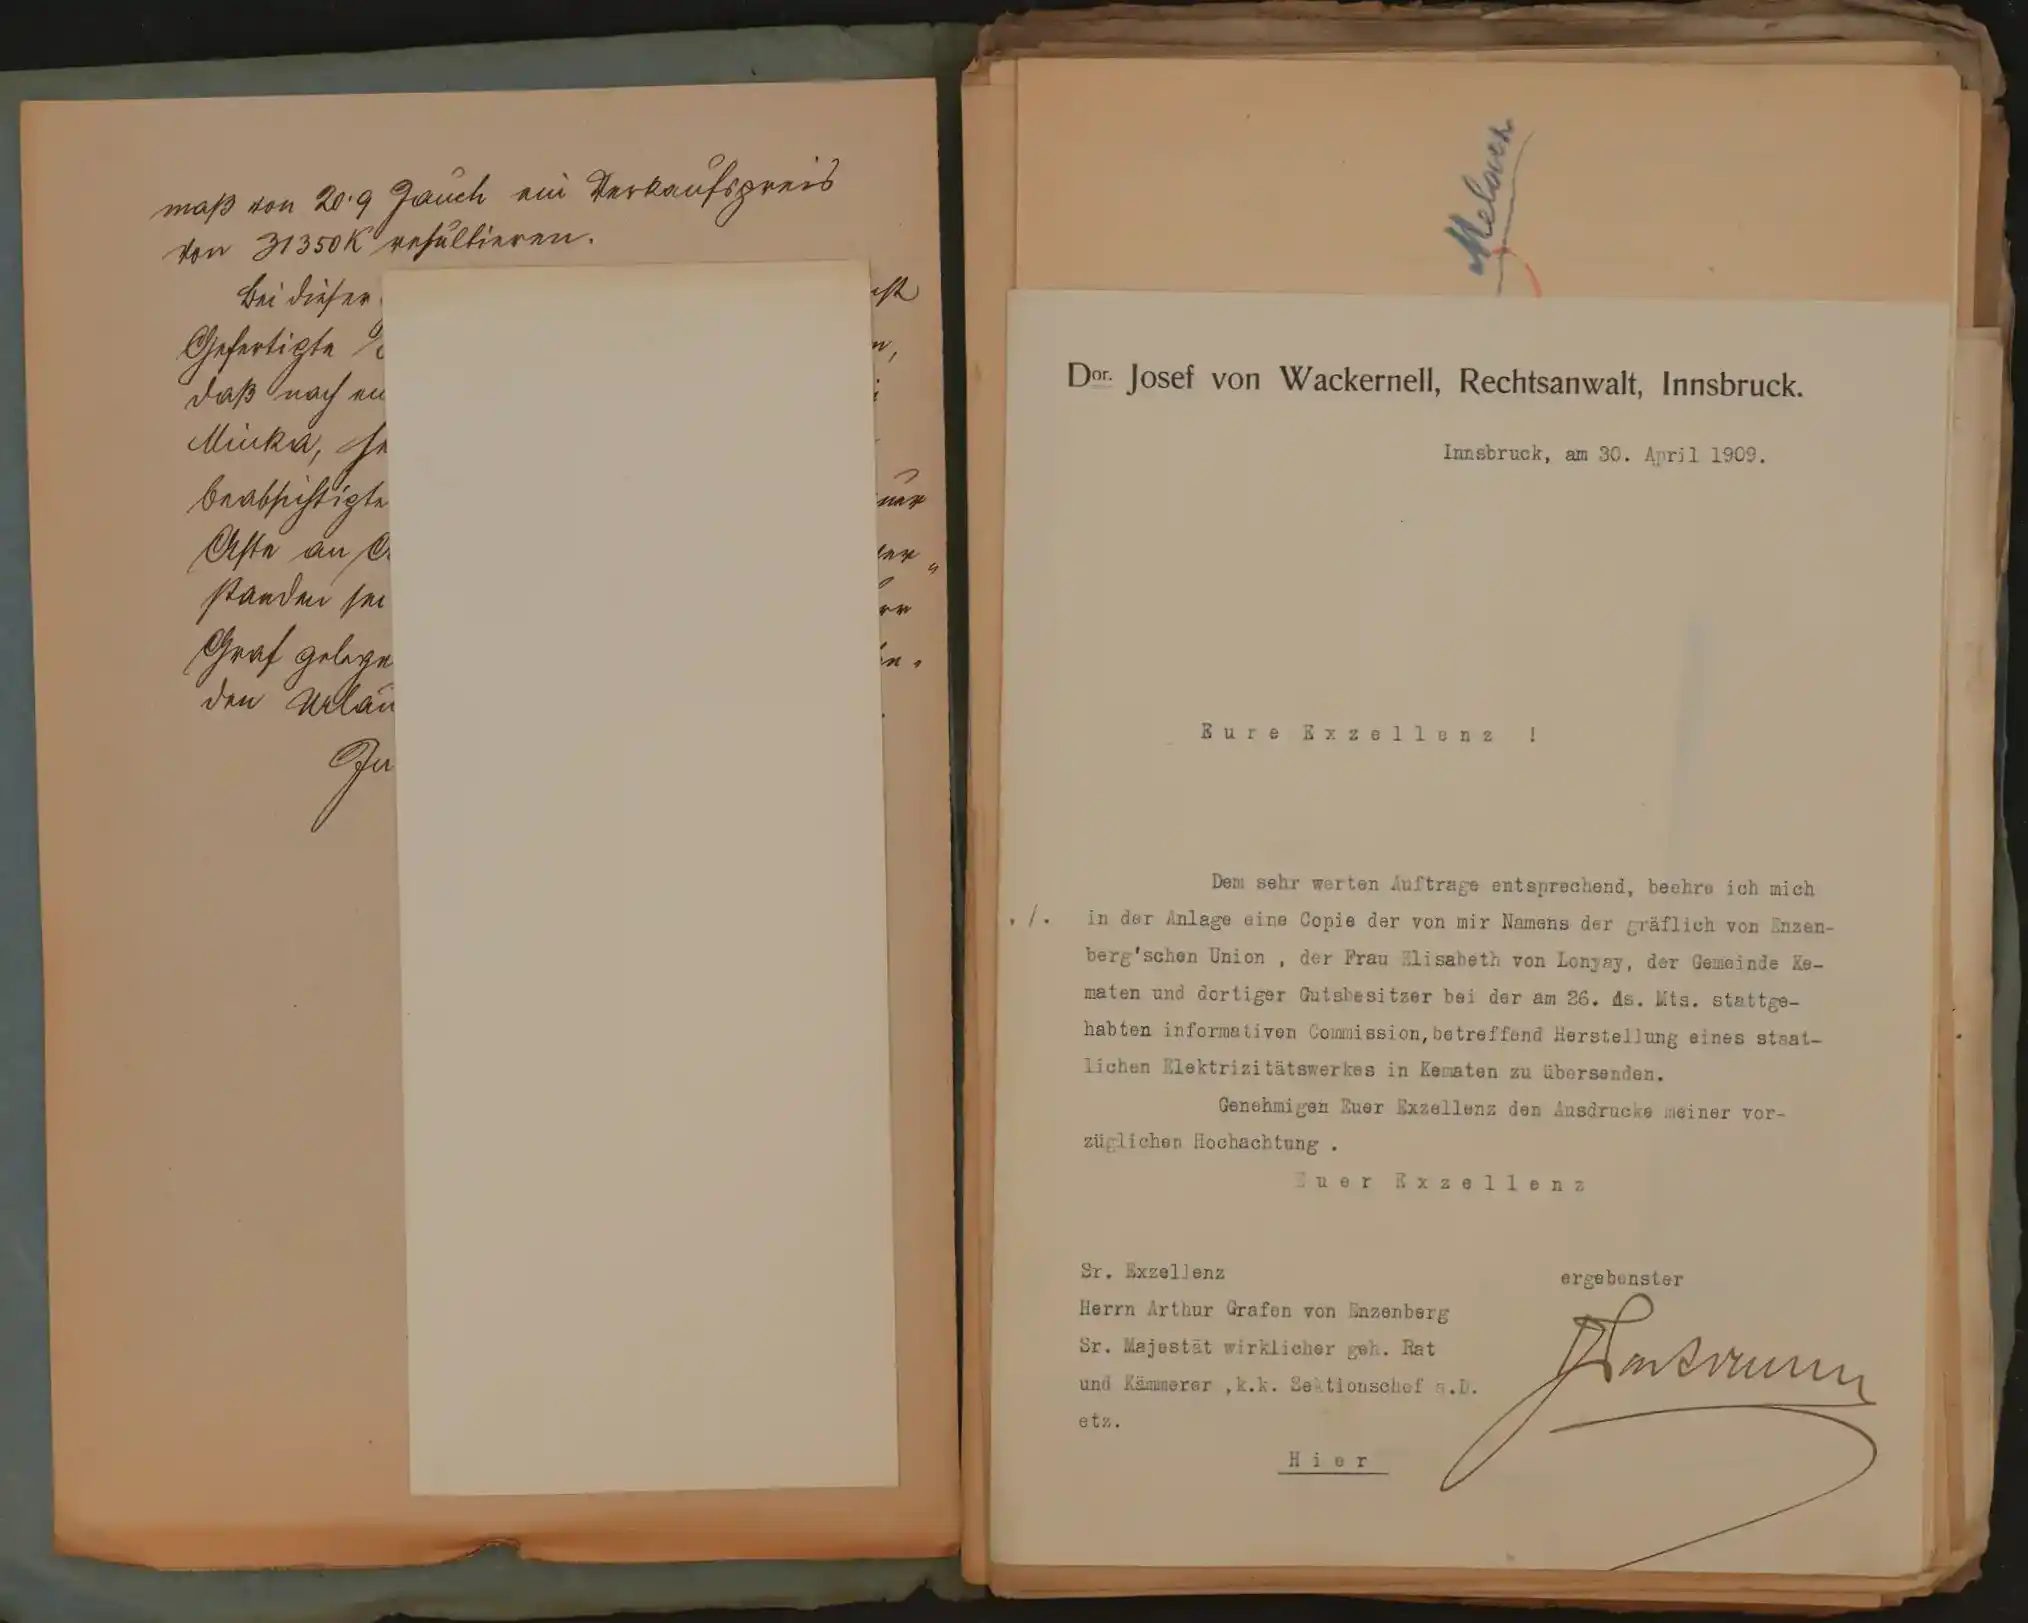 maß von 20·9 Jauch ein Verkaufspreis
von 31350K resultieren.
Bei dieser
Gefertigte
daß nach
Minka,
beabsichtigte
Afta an
standen sei
Graf gelege
den Urlau
Melach
Dor. Josef von Wackernell, Rechtsanwalt, Innsbruck.
Innsbruck, am 30. April 1909.
Eure Exzellenz !
Dem sehr werten Auftrage entsprechend, beehre ich mich
./. in der Anlage eine Copie der von mir Namens der gräflich von Enzen-
berg'schen Union , der Frau Elisabeth von Lonyay, der Gemeinde Ke-
maten und dortiger Gutsbesitzer bei der am 26. ds. Mts. stattge-
habten informativen Commission,betreffend Herstellung eines staat-
lichen Elektrizitätswerkes in Kematen zu übersenden.
Genehmigen Euer Exzellenz den Ausdrucke meiner vor-
züglichen Hochachtung .
Euer Exzellenz
Sr. Exzellenz
ergebenster
Herrn Arthur Grafen von Enzenberg
Sr. Majestät wirklicher geh. Rat
und Kämmerer ,k.k. Sektionschef a.D.
etz.
Hier